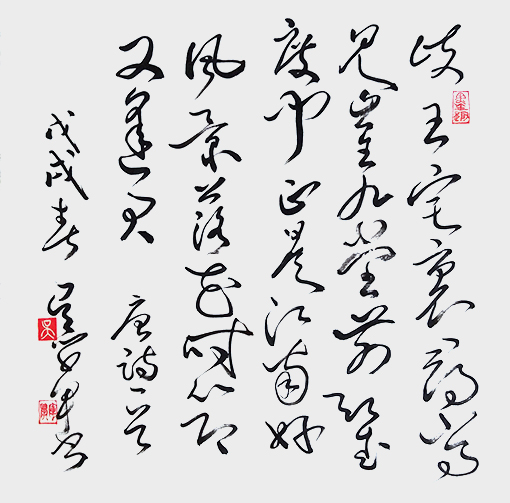 岐王宅裏尋常
見崔九堂前幾
度聞正是江南好
風景落花時節
又逢君 唐詩一首
戊戌春